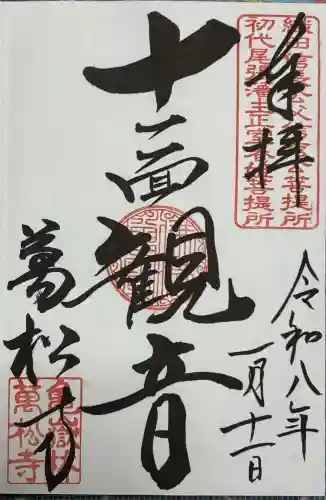 奉拝
織田信長公父信秀公菩提所
初代尾張藩主正室春姫菩提所
十一面観音
萬松寺
亀岳林
萬松寺
令和八年
一月十一日